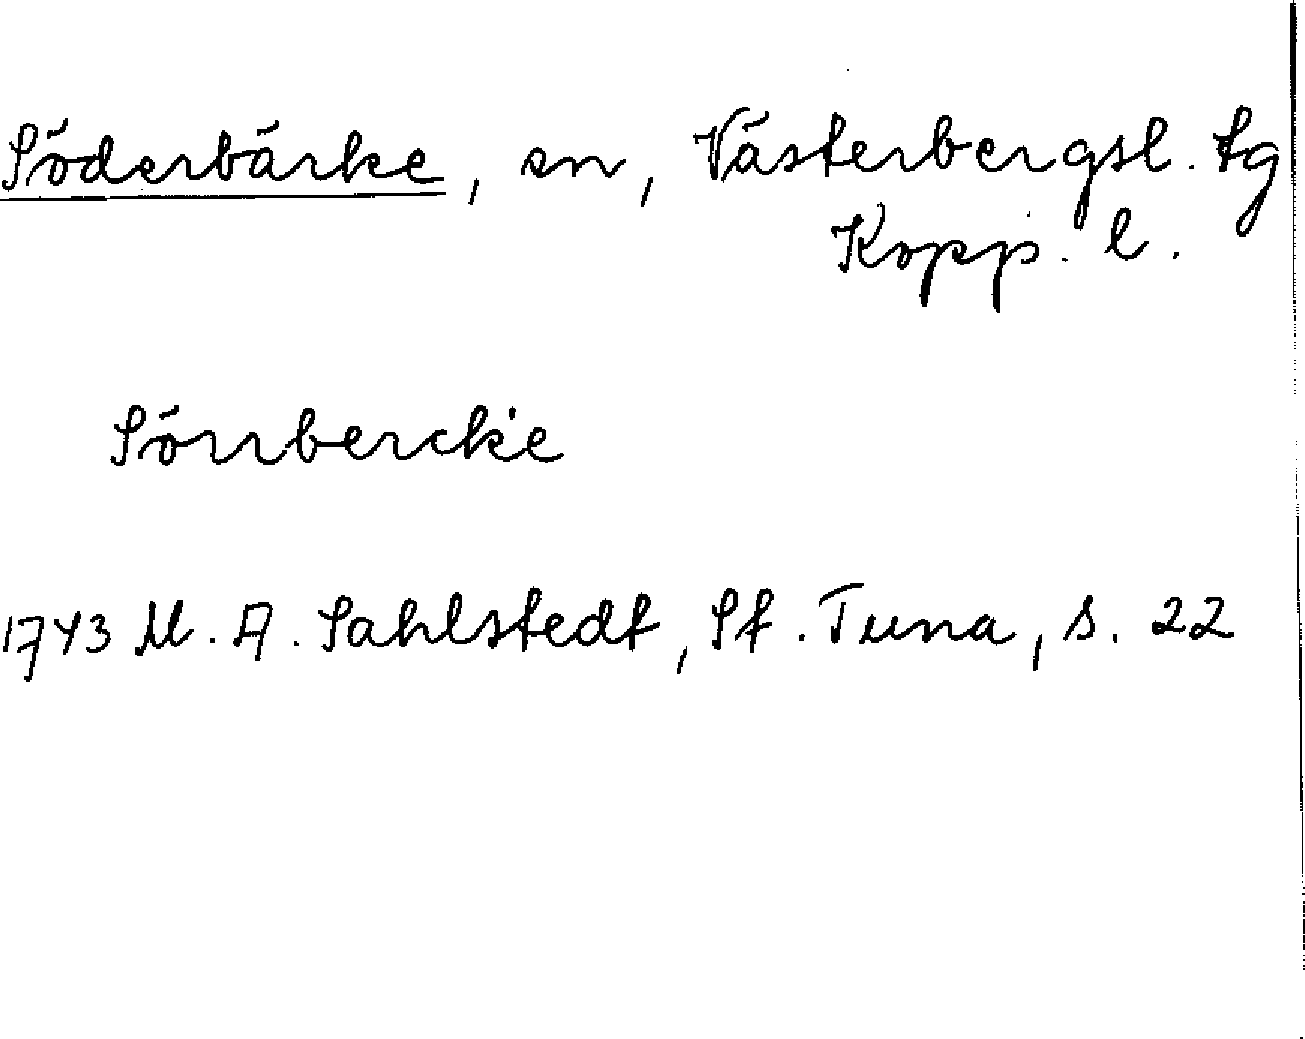 Söderbärke, sn, Västerbergsl. tg
Kopp. l.
Sörrbercke
1743 M. A. Sahlstedt, St. Tuna, s. 22